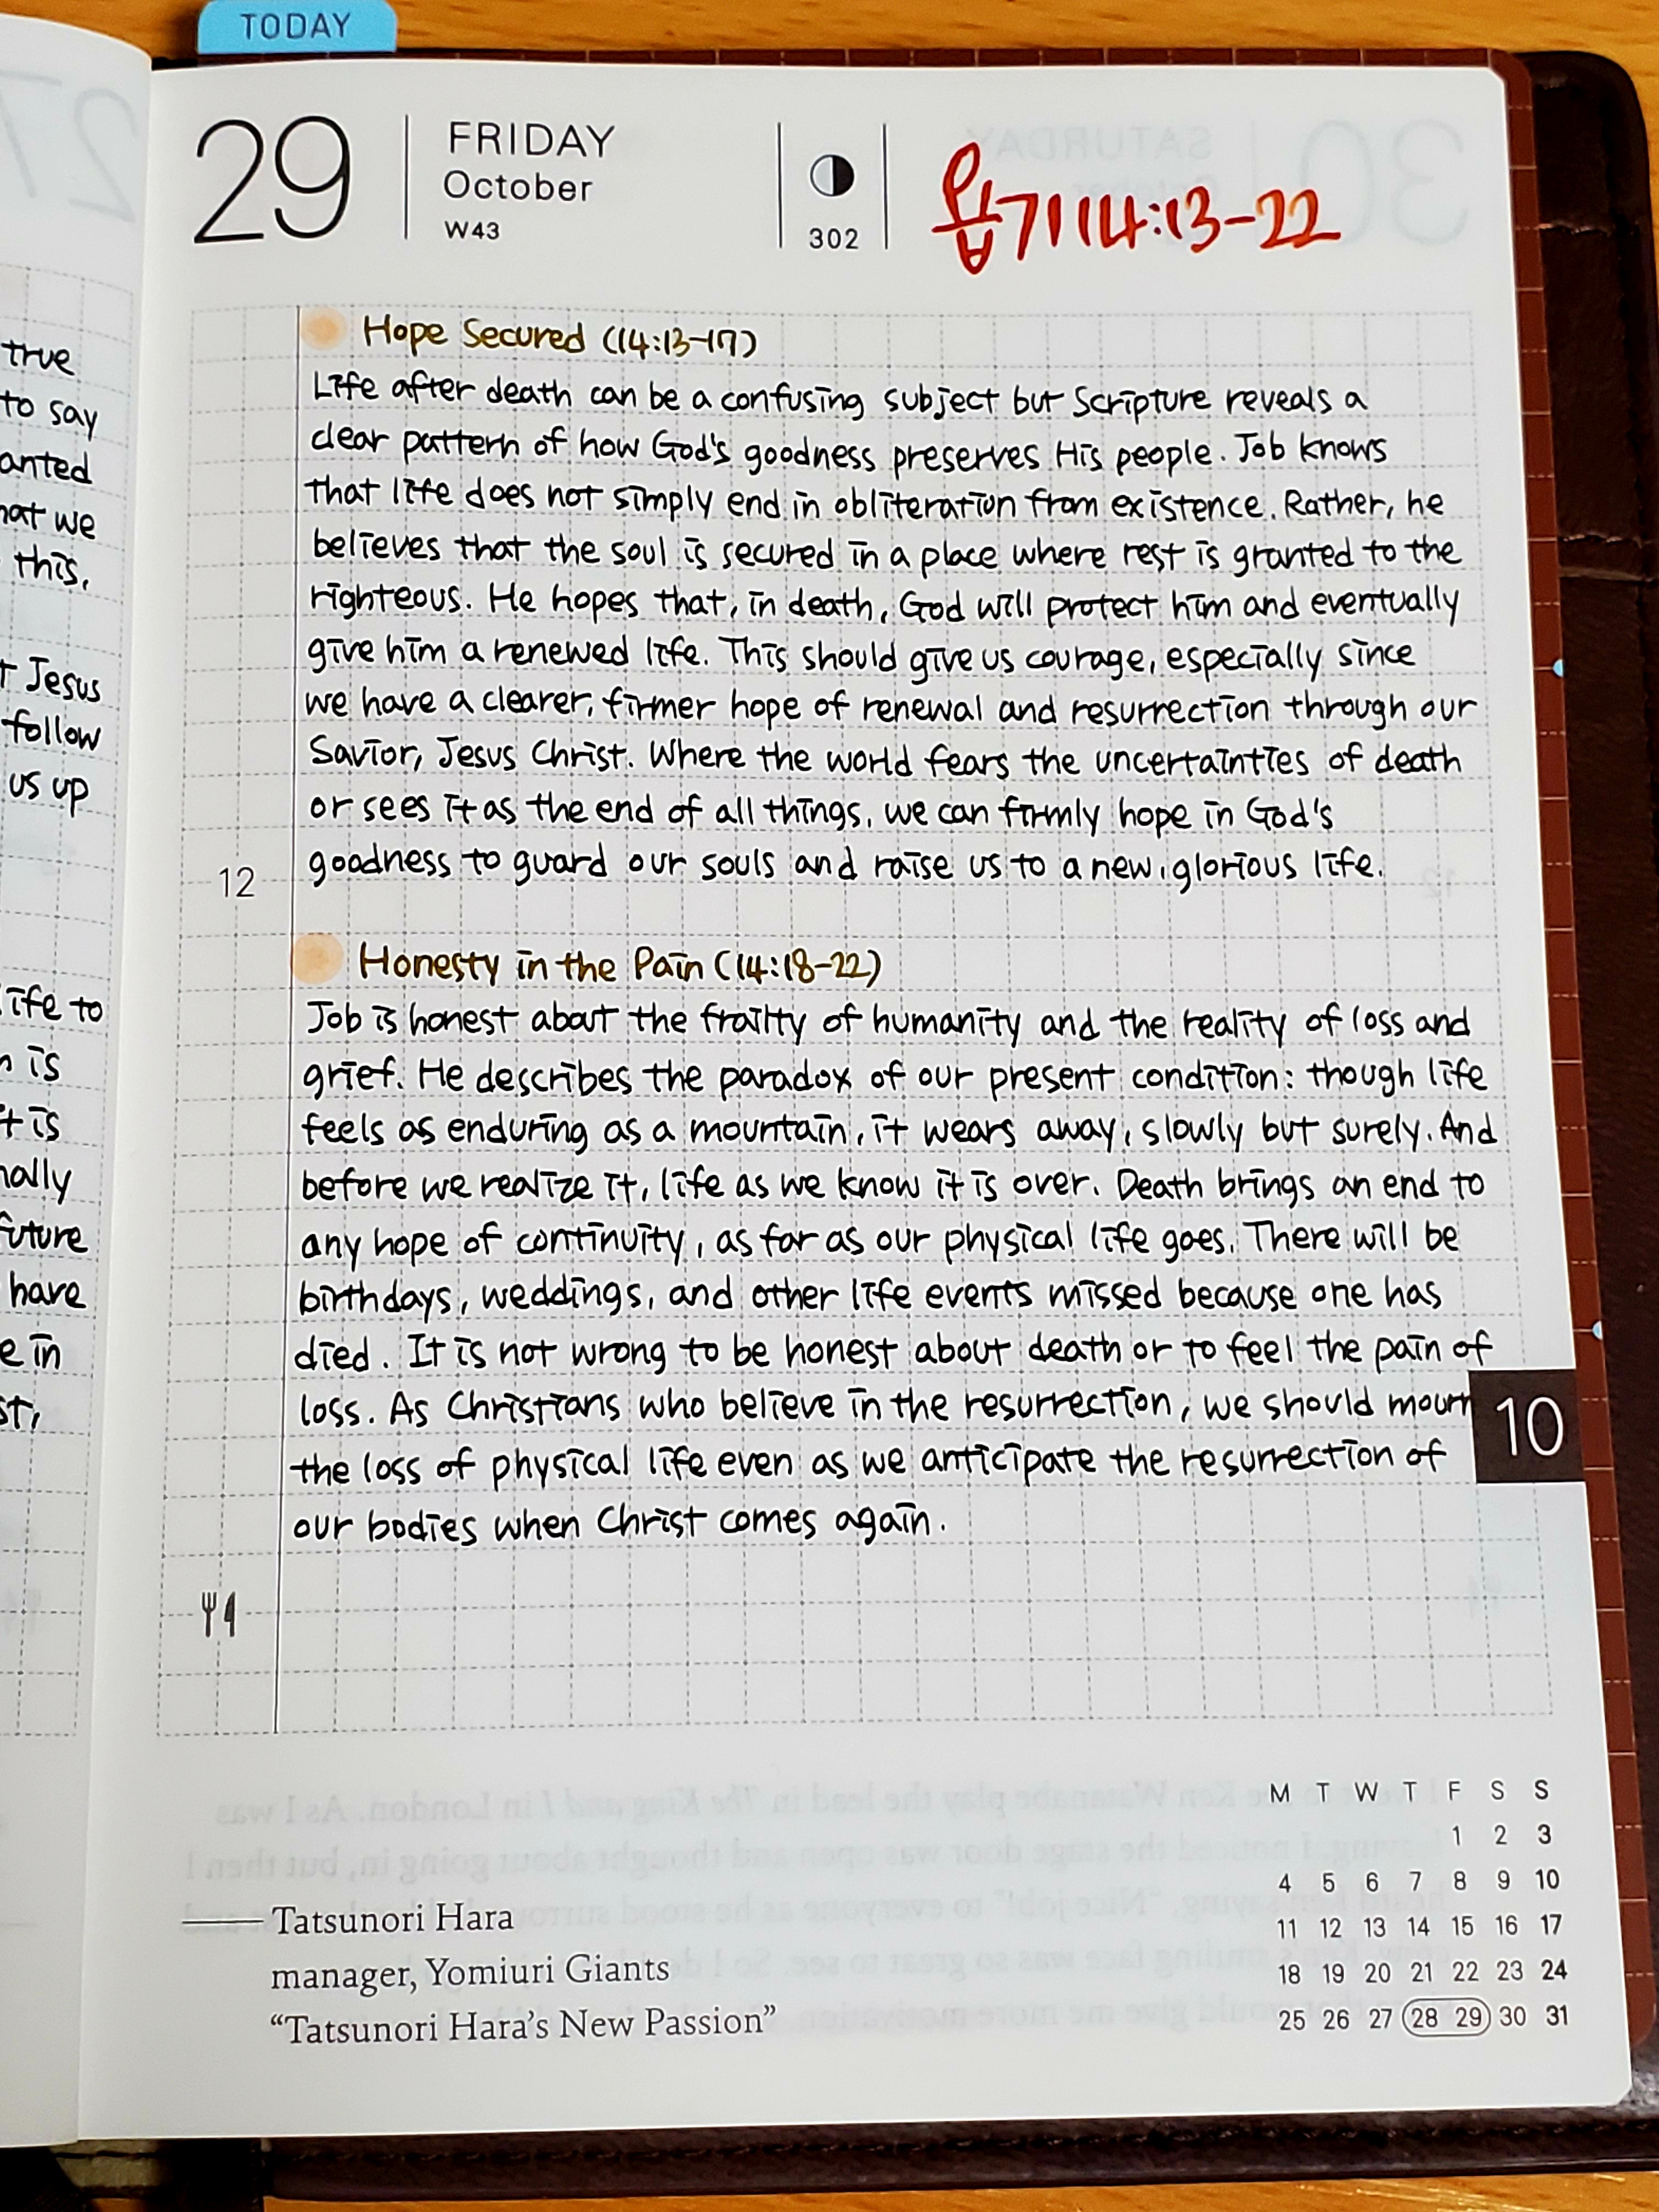 TODAY
29
FRIDAY
October
W43
302
욥기 14:13-22
true
to say
anted
hat we
this,
Jesus
follow
us up
ife to
is
is
nally
future
have
in
st,
Hope Secured (14:13-17)
Life after death can be a confusing subject but Scripture reveals a
clear pattern of how God's goodness preserves His people. Job knows
that life does not simply end in obliteration from existence. Rather, he
believes that the soul is secured in a place where rest is granted to the
righteous. He hopes that, in death, God will protect him and eventually
give him a renewed life. This should give us courage, especially since
we have a clearer, firmer hope of renewal and resurrection through our
Savior, Jesus Christ. Where the world fears the uncertainties of death
or sees it as the end of all things, we can firmly hope in God's
goodness to guard our souls and raise us to a new, glorious life.
12
Honesty in the Pain (14:18-22)
Job is honest about the frailty of humanity and the reality of loss and
grief. He describes the paradox of our present condition: though life
feels as enduring as a mountain, it wears away, slowly but surely. And
before we realize it, life as we know it is over. Death brings an end to
any hope of continuity, as far as our physical life goes. There will be
birthdays, weddings, and other life events missed because one has
died. It is not wrong to be honest about death or to feel the pain of
loss. As Christians who believe in the resurrection, we should mourn
the loss of physical life even as we anticipate the resurrection of
our bodies when Christ comes again.
10
Tatsunori Hara
manager, Yomiuri Giants
“Tatsunori Hara’s New Passion”
M T W T F S S
1 2 3
4 5 6 7 8 9 10
11 12 13 14 15 16 17
18 19 20 21 22 23 24
25 26 27 28 29 30 31